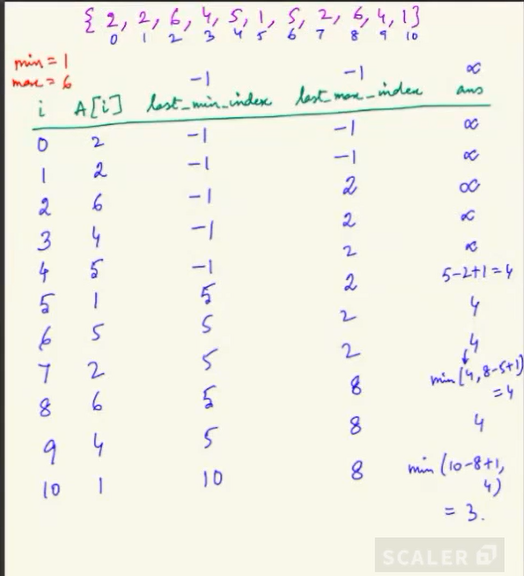 { 2, 2, 6, 4, 5, 1, 5, 2, 6, 4, 1}
0 1 2 3 4 5 6 7 8 9 10
min = 1
max = 6 -1 -1 ∞
i A[i] last_min_index last_max_index ans
0 2 -1 -1 ∞
1 2 -1 -1 ∞
2 6 -1 2 ∞
3 4 -1 2 ∞
4 5 -1 2 ∞
5 1 5 2 5-2+1=4
6 5 5 2 4
7 2 5 2 4
8 6 5 8 min(4, 8-5+1)
= 4
9 4 5 8 4
10 1 10 8 min(10-8+1,
4)
= 3.
SCALER